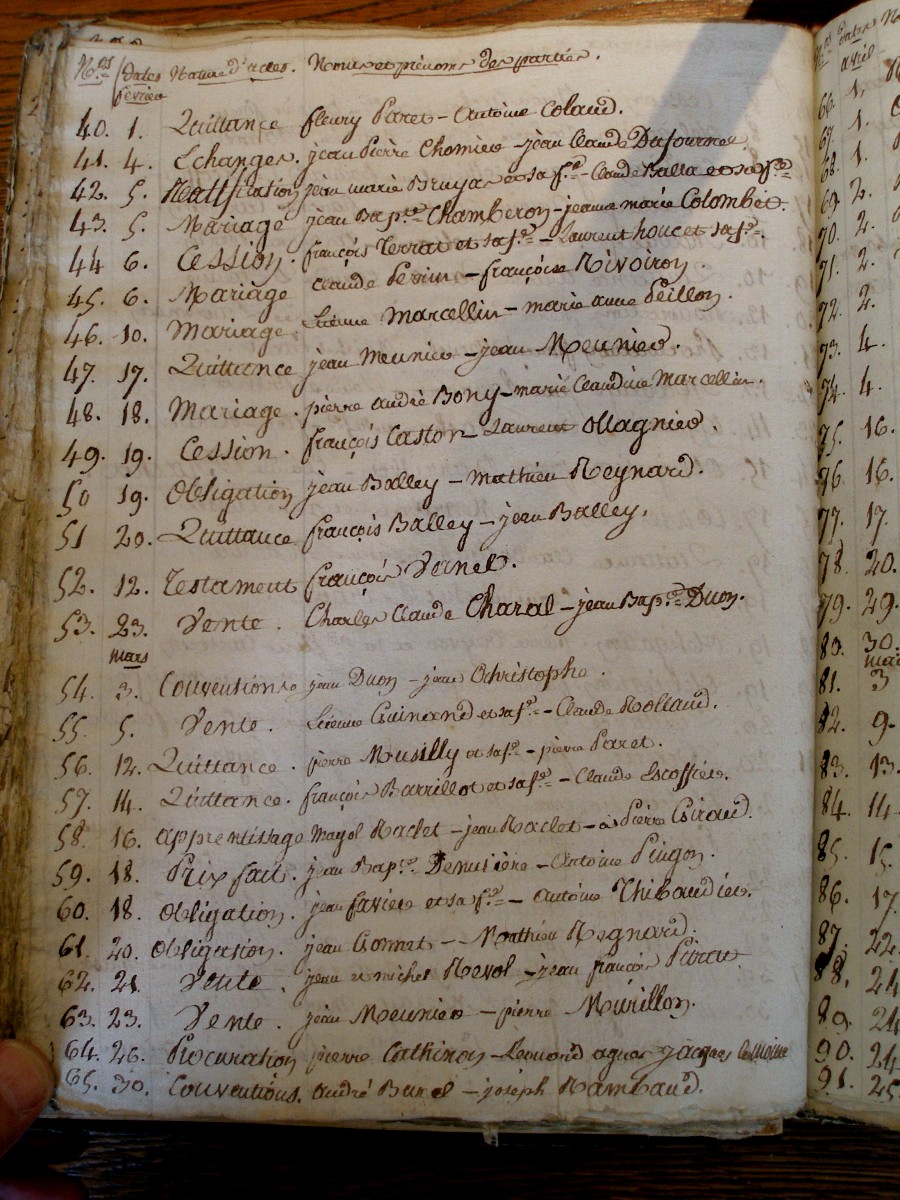 N.os Dates Nature d'actes. Noms et prénoms des parties.
février
40. 1. Quittance fleury Paret - Antoine Colaud.
41. 4. Echanges. jean Pierre Chomier - jean Claude Dufournel.
42. 5. Ratification jean marie Bruyas et sa fe. - Claude Balla et sa fe.
43. 5. Mariage jean Bapte. Chamberon - jeanne marie Colombet.
44 6. Cession. françois Terrat et sa fe. - Laurent houc et sa fe.
45. 6. Mariage Claude Perrin - françoise Rivoiron.
46. 10. Mariage. Etienne Marcellin - marie anne Peillon.
47. 17. Quittance jean Meunier - jean Meunier.
48. 18. Mariage. pierre andré Bony - marie Claudine Marcellin.
49. 19. Cession. françois Caston - Laurent Ollagnier.
50 19. Obligation jean Balley - Mathieu Reynard.
51 20. Quittance françois Balley - jean Balley.
52. 12. Testament françois Vernet.
53. 23. Vente. Charles Claude Charal - jean Bapte. Duon.
mars
54. 3. Conventions jean Duon - jean Christophe.
55. 5. Vente. Etienne Guinand et sa fe. - Claude Rolland.
56. 12. Quittance. pierre Musilly et sa fe. - pierre Paret.
57. 14. Quittance. françois Barrillot et sa fe. - Claude Escoffier.
58. 16. apprentissage Mayol Raclet - jean Raclet - à Pierre Giraud.
59. 18. Prix fait. jean Bapte. Denusière - Antoine Pingon.
60. 18. Obligation. jean favier et sa fe. - Antoine Thibaudier.
61. 20. Obligation. jean Gonnet - Mathieu Regnard.
62. 21 Vente. jean et michel Revol - jean françois
63. 23. Vente. jean Meunier - pierre Murillon.
64. 26. Procuration pierre Cathinon - jacques
65. 30. Conventions. andré Burel - joseph Rambaud.
N.os Dates
avril
66. 1.
67. 1.
68. 1.
69. 2.
70. 2.
71. 2.
72. 2.
73. 4.
74. 4.
75. 16.
76. 16.
77. 17.
78. 20.
79. 29.
80. 30.
mai
81. 3
82. 9.
83. 13.
84. 14
85. 15.
86. 17
87. 22.
88. 24
89. 24
90. 24
91. 25